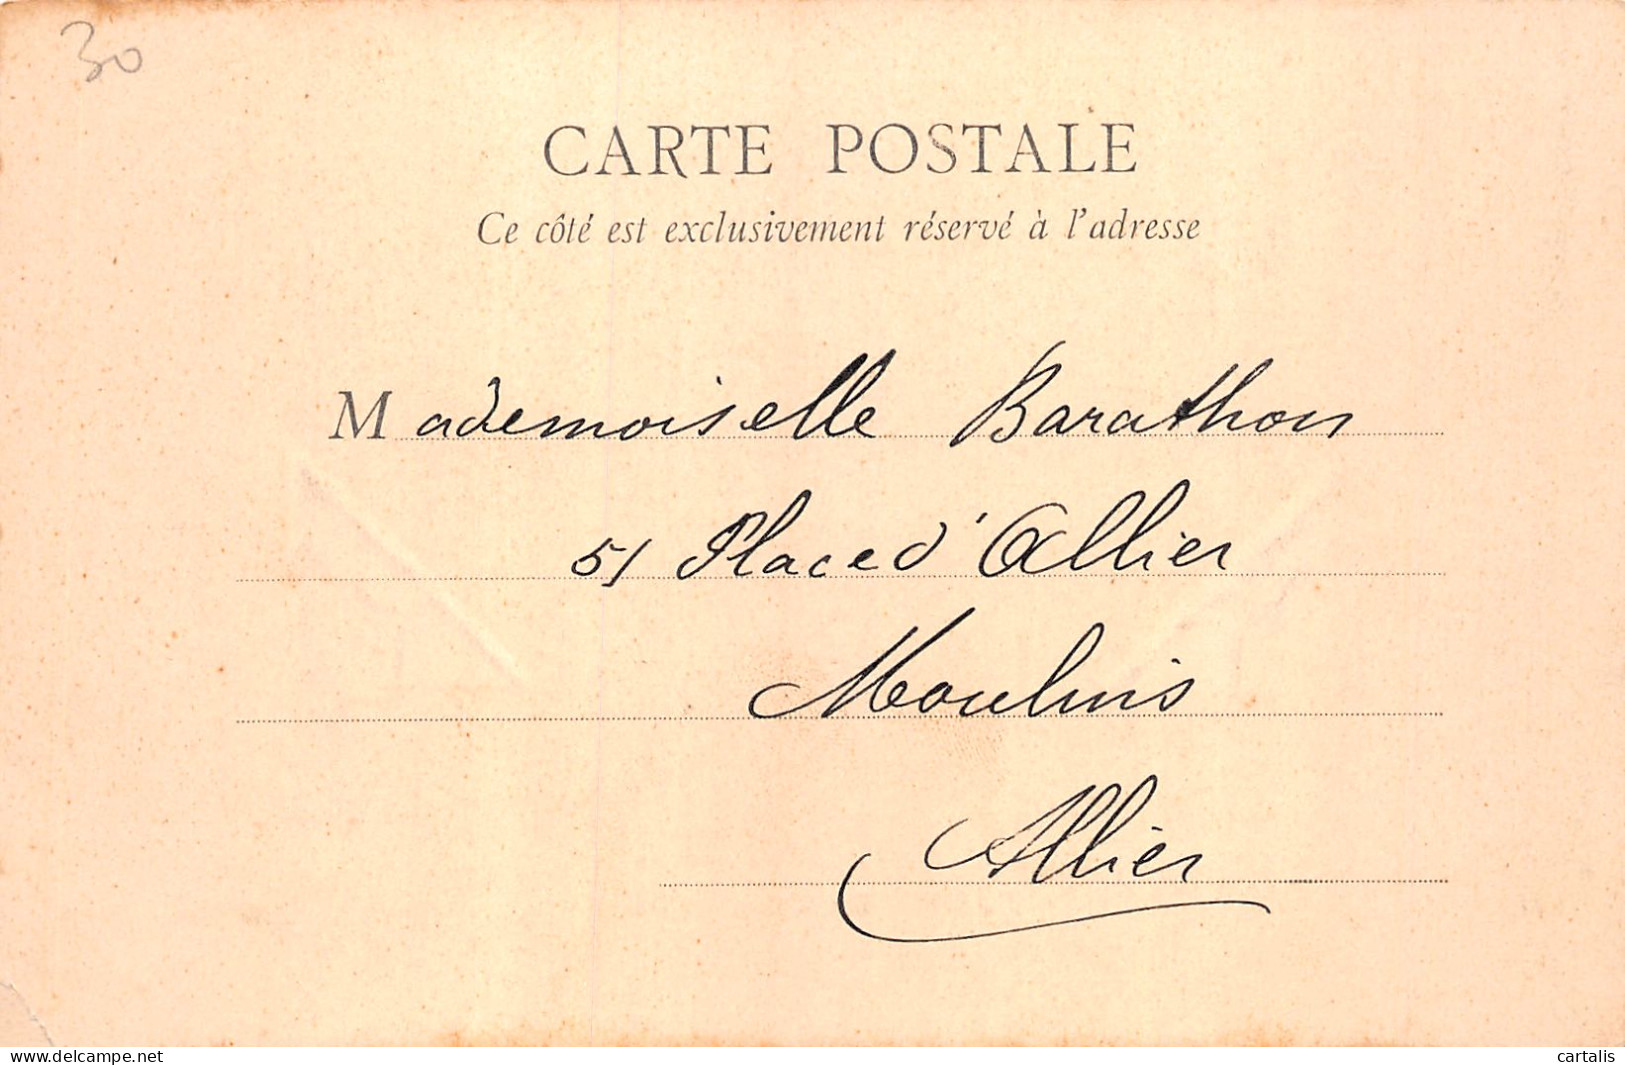 30
CARTE POSTALE
Ce côté est exclusivement réservé à l'adresse
Mademoiselle Barathon
51 Place d'Allier
Moulins
Allier
the-postcard.delcampe.net
cartalis